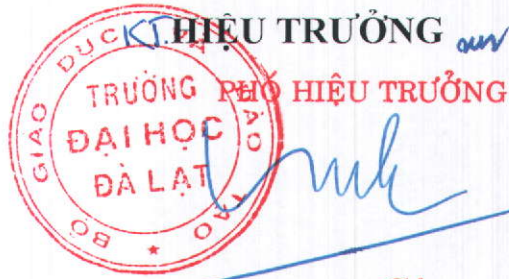 KT. HIỆU TRƯỞNG
PHÓ HIỆU TRƯỞNG
BỘ GIÁO DỤC VÀ ĐÀO TẠO
TRƯỜNG
ĐẠI HỌC
ĐÀ LẠT